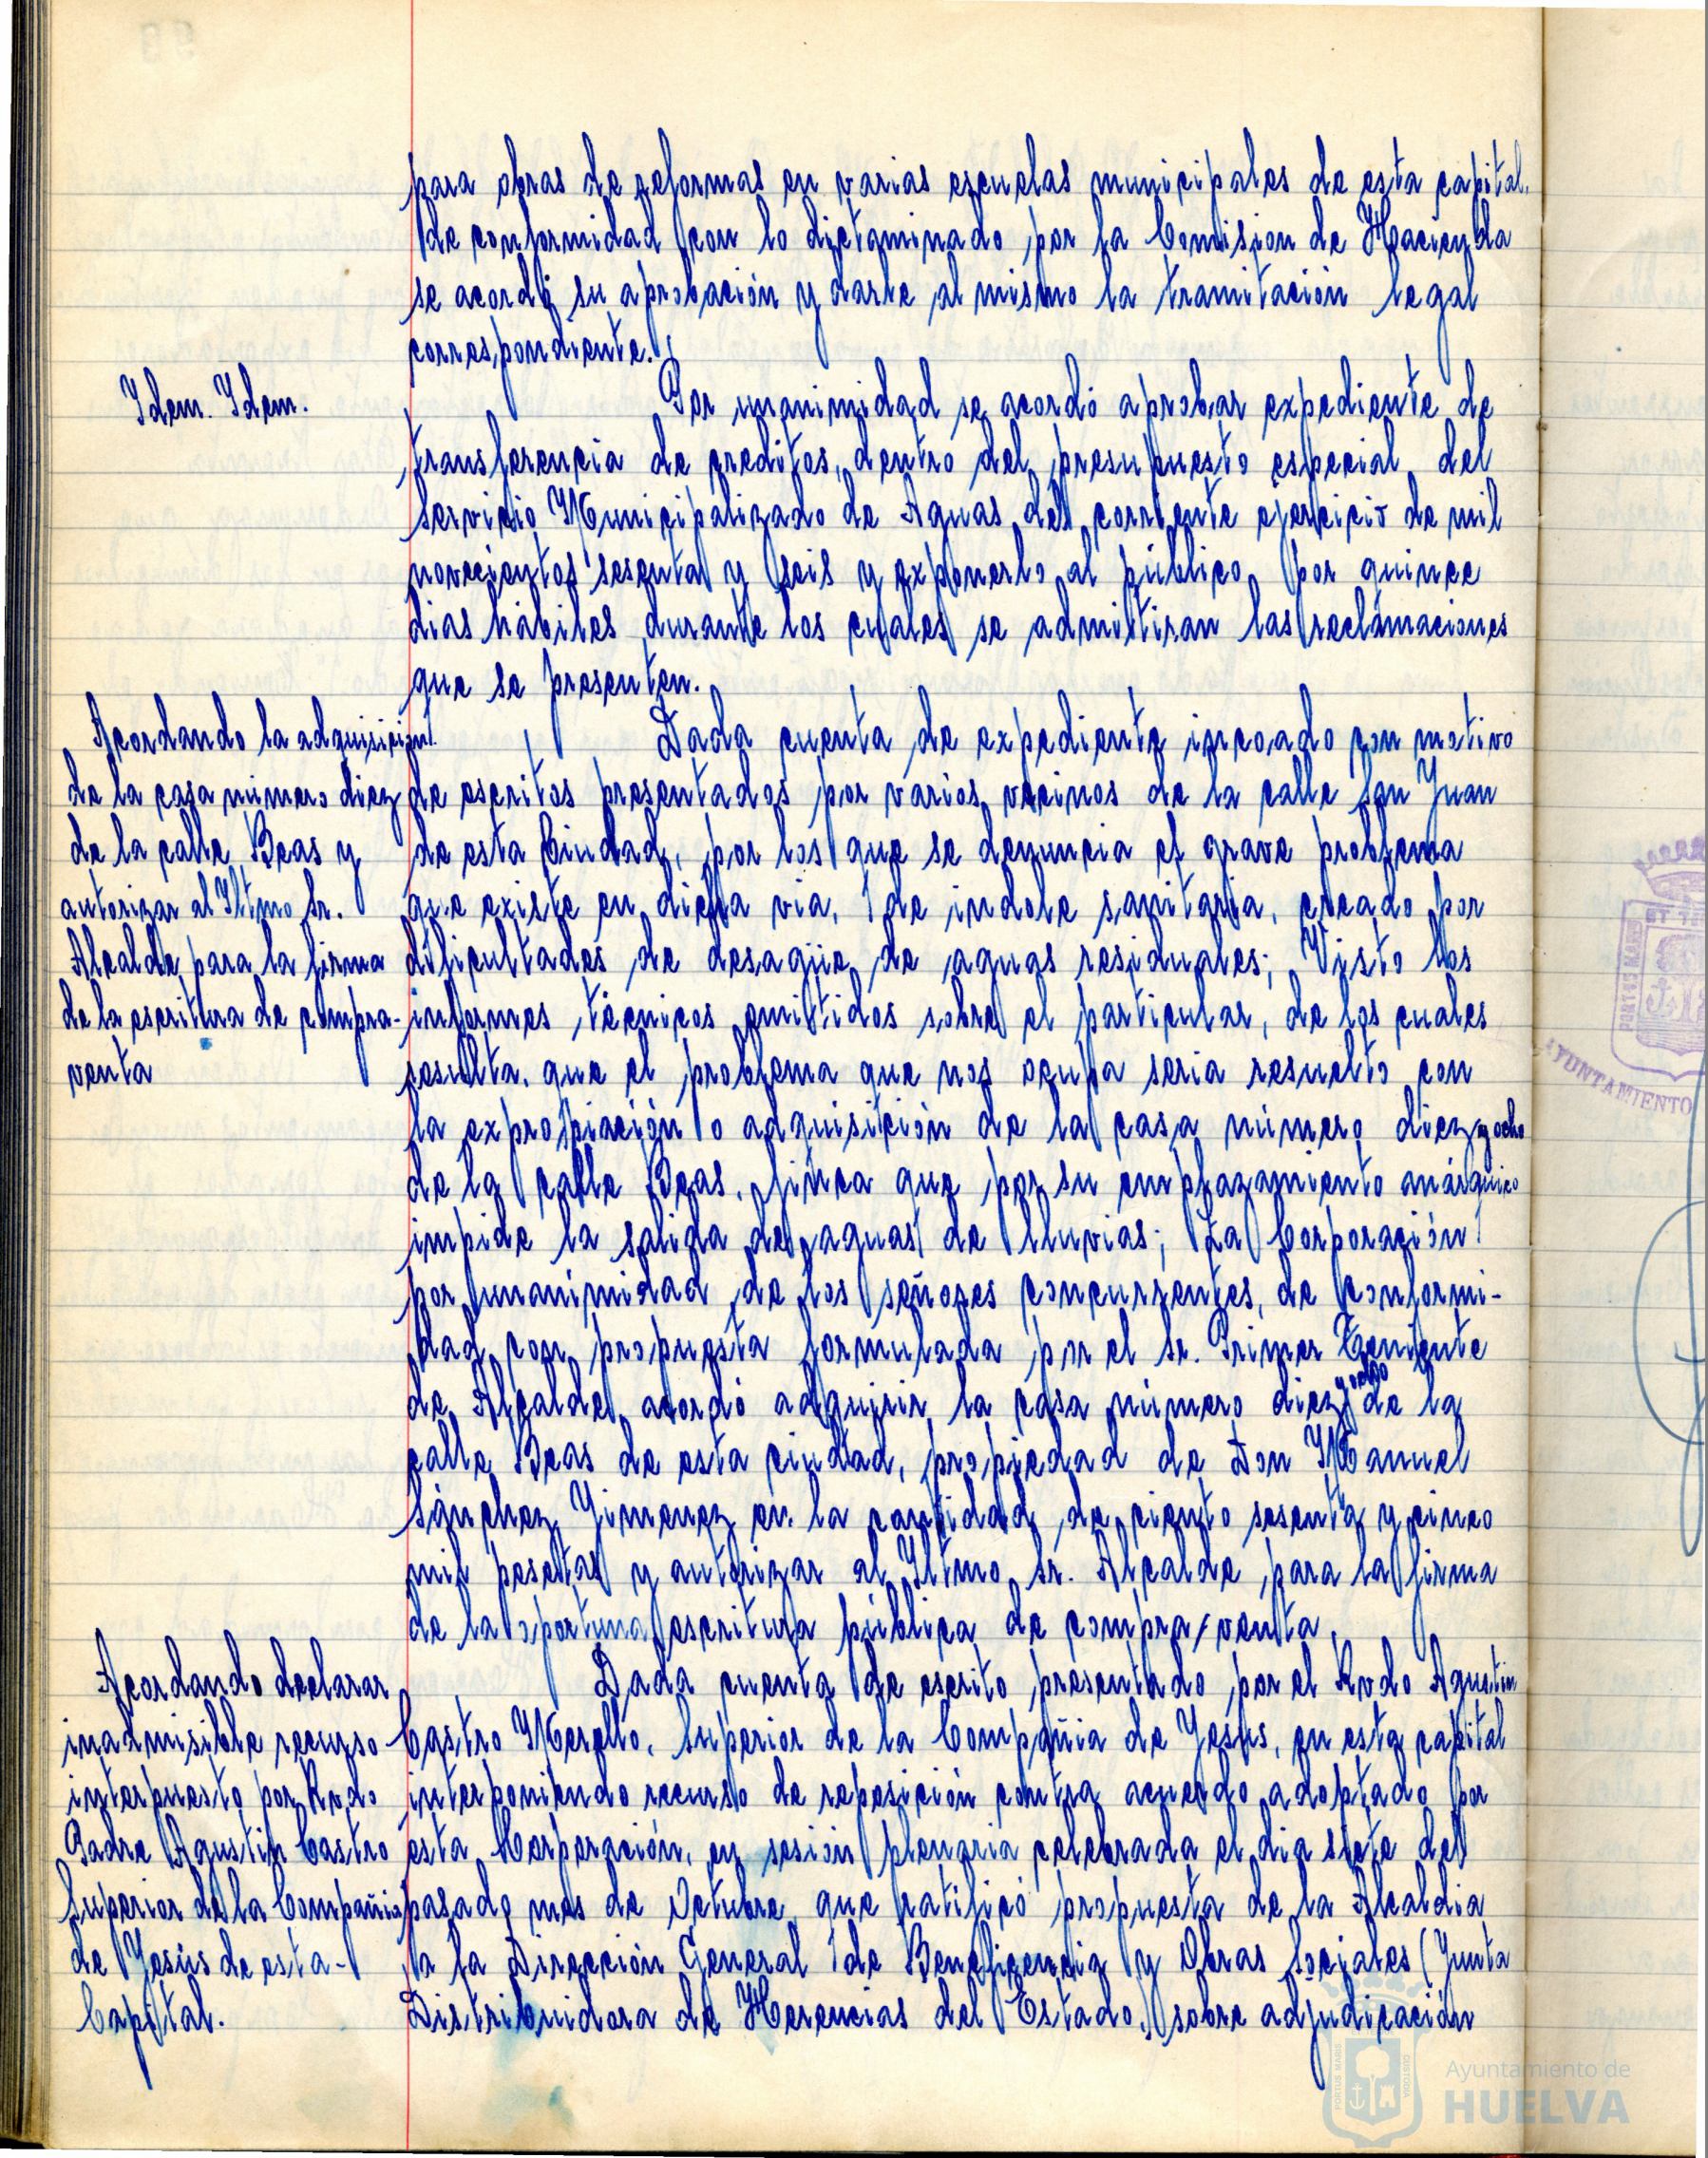 para obras de reformas en varias escuelas municipales de esta capital,
de conformidad con lo dictaminado por la Comision de Hacienda
se acordó su aprobación y darle al mismo la tramitación legal
correspondiente.
Idem. Idem.
Por unanimidad se acordó aprobar expediente de
transferencia de creditos, dentro del presupuesto especial del
Servicio Municipalizado de Aguas del corriente ejercicio de mil
novecientos sesenta y seis y exponerlo al público por quince
dias hábiles durante los cuales se admitiran las reclamaciones
que se presenten.
Acordando la adquisición
de la casa número diez
de la calle Beas y
autorizar al Iltmo Sr.
Alcalde para la firma
de la escritura de compra-
venta
Dada cuenta de expediente incoado con motivo
de escritos presentados por varios vecinos de la calle San Juan
de esta Ciudad, por los que se denuncia el grave problema
que existe en dicha via, de indole sanitaria, creado por
dificultades de desagüe de aguas residuales; Visto los
informes técnicos emitidos sobre el particular, de los cuales
resulta, que el problema que nos ocupa seria resuelto con
la expropiación o adquisición de la casa número diez y ocho
de la calle Beas, finca que por su emplazamiento anárquico
impide la salida de aguas de lluvias; La Corporación
por unanimidad de los señores concurrentes, de conformi-
dad con propuesta formulada por el Sr. Primer Teniente
de Alcalde, acordó adquirir la casa número diez y ocho de la
calle Beas de esta ciudad, propiedad de Don Manuel
Sánchez Yimenez en la cantidad de ciento sesenta y cinco
mil pesetas y autorizar al Iltmo Sr. Alcalde para la firma
de la oportuna escritura pública de compra/venta.
Acordando declarar
inadmisible recurso
interpuesto por Rvdo
Padre Agustin Castro
Superior de la Compañia
de Yesús de esta-
Capital.
Dada cuenta de escrito presentado por el Rvdo Agustin
Castro Merello, Superior de la Compañia de Yesús, en esta capital
interponiendo recurso de reposición contra acuerdo adoptado por
esta Corporación, en sesión plenaria celebrada el dia siete del
pasado mes de Octubre, que ratificó propuesta de la Alcaldia
a la Dirección General de Beneficencia y Obras Sociales (Yunta
Distribuidora de Herencias del Estado,) sobre adjudicación
PORTUS MARIS
AYUNTAMIENTO
Ayuntamiento de
HUELVA